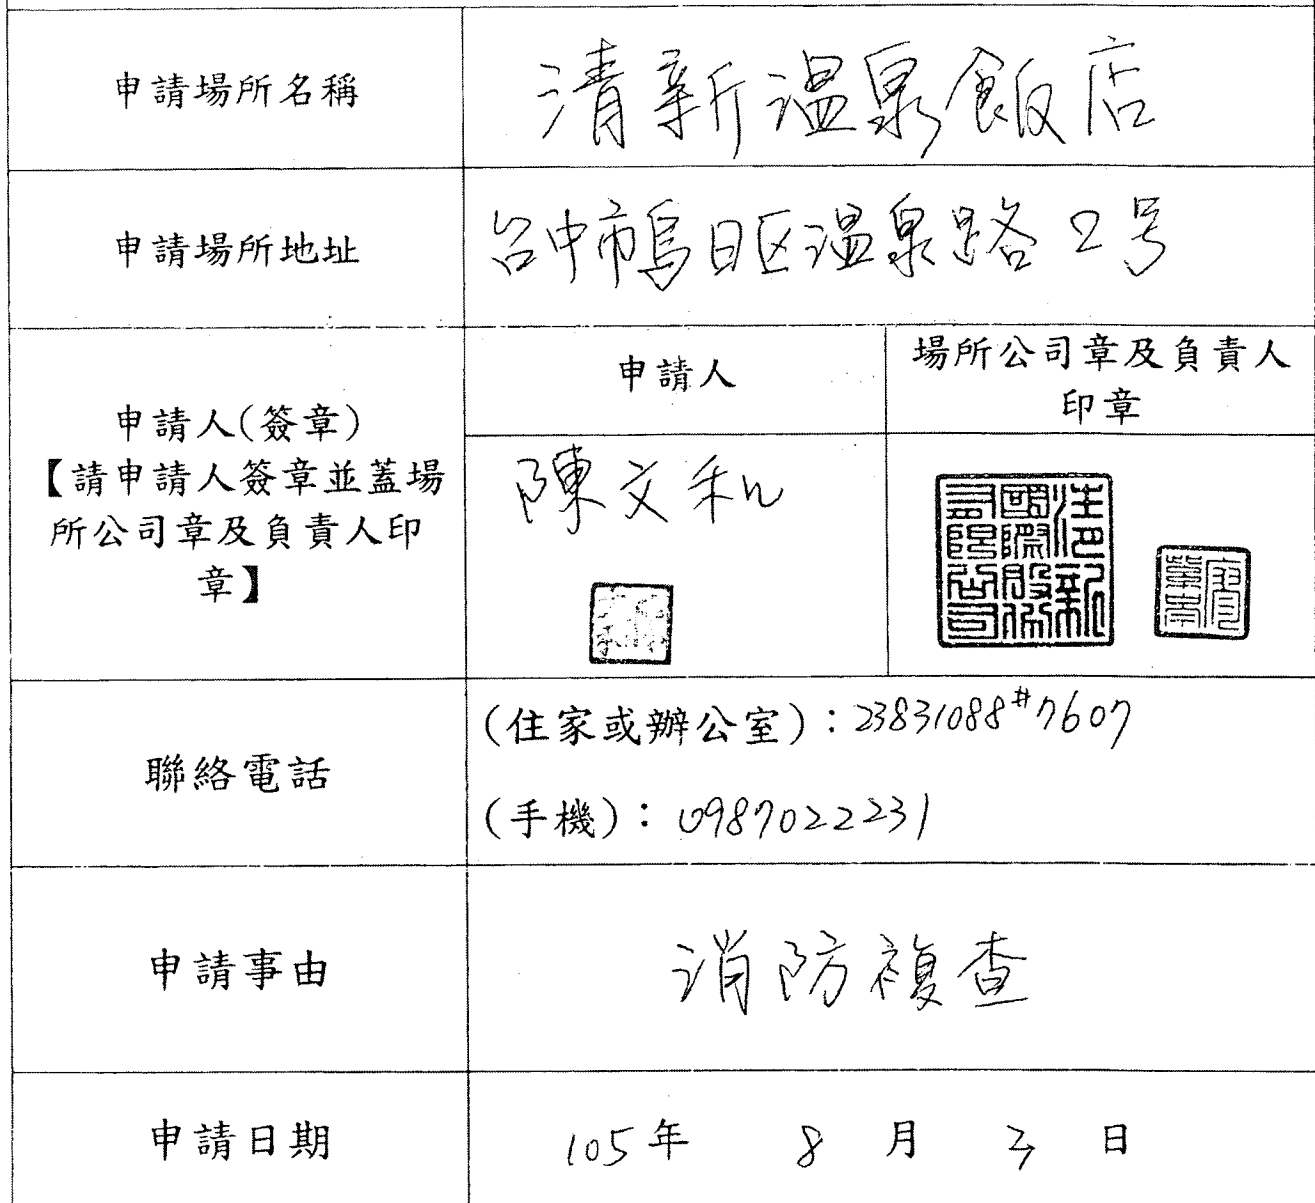 申請場所名稱
清新溫泉飯店
申請場所地址
台中市烏日区溫泉路2号
申請人(簽章)
【請申請人簽章並蓋場
所公司章及負責人印
章】
申請人
場所公司章及負責人
印章
陳文和
聯絡電話
(住家或辦公室):23831088#7607
(手機):0987022231
申請事由
消防複查
申請日期
105年 8 月 3 日